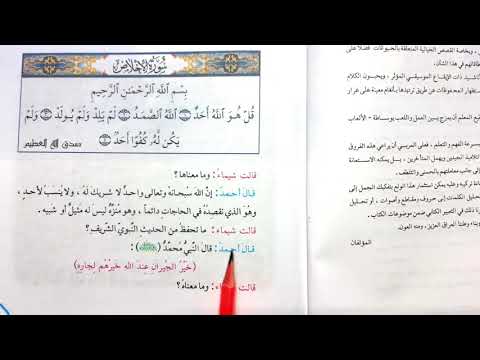 سُورَةُ الإِخْلَاصِ
بِسْمِ اللَّهِ الرَّحْمَٰنِ الرَّحِيمِ
قُلْ هُوَ اللَّهُ أَحَدٌ ۝ اللَّهُ الصَّمَدُ ۝ لَمْ يَلِدْ وَلَمْ يُولَدْ ۝ وَلَمْ
يَكُن لَّهُ كُفُوًا أَحَدٌ ۝ صدق الله العظيم
قالت شيماءُ: وما معناها؟
قال أحمدُ: إنَّ اللهَ سبحانهُ وتعالى واحدٌ لا شريكَ لهُ، ولا ينسبُ لأحدٍ،
وهُوَ الذي نقصدُهُ في الحاجاتِ دائماً، وهو منزَّهٌ ليس له مثيلٌ أو شبيه.
قالت شيماءُ: ما تحفظُ من الحديثِ النبويِّ الشَّريفِ؟
قال أحمدُ: قالَ النَّبيُّ مُحَمَّدٌ (ﷺ):
(خَيْرُ الجِيرانِ عِنْدَ اللهِ خَيْرُهُمْ لِجَارِهِ)
قالت شيماءُ: وما معناهُ؟
، وبخاصة القصص الخيالية المتعلقة بالحيوانات. فضلاً على
في هذا الشأن.
ذات الإيقاع الموسيقي المؤثر، ويحبون الكلام
المحفوظات عن طريق ترديدها بأنغام معينة على غرار
المتعلم أن يمزج بين العمل واللعب بوساطة - الألعاب
الفهم و التعلم، فعلى المربي أن يراعي هذه الفروق
بتحليل الجمل إلى
الكلمات إلى حروف ومقاطع وأصوات، أو تحليل
في التعبير الكتابي ضمن موضوعات الكتاب.
العراق العزيز. ومنه العون.
المؤلفان